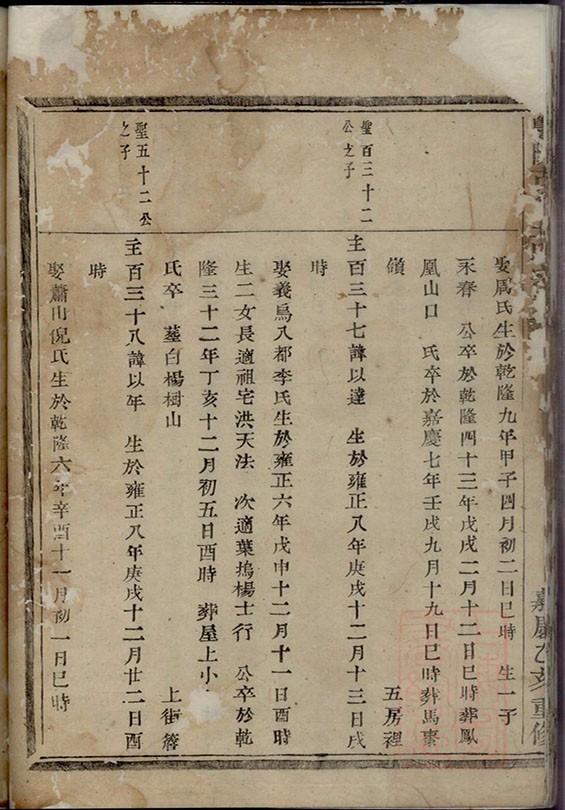 娶周氏生於乾隆九年甲子四月初二日巳時 生一子
永春 公卒於乾隆四十三年戊戌二月十二日巳時葬鳳
凰山口 氏卒於嘉慶七年壬戌九月十九日巳時葬馬
嶺 五房裡
聖百三十二
公之子
主百三十七諱以達 生於雍正八年庚戌十二月十三日戌
時
娶義烏八都李氏生於雍正六年戊申十二月十一日酉時
生二女長適祖宅洪天法 次適葉塢楊士行 公卒於乾
隆三十二年丁亥十二月初五日酉時 葬屋上小
氏卒 墓白楊樹山 上街簷
聖五十二公
之子
主百三十八諱以年 生於雍正八年庚戌十二月廿二日酉
時
娶蕭山倪氏生於乾隆六年辛酉十一月初一日巳時
嘉慶乙亥重修